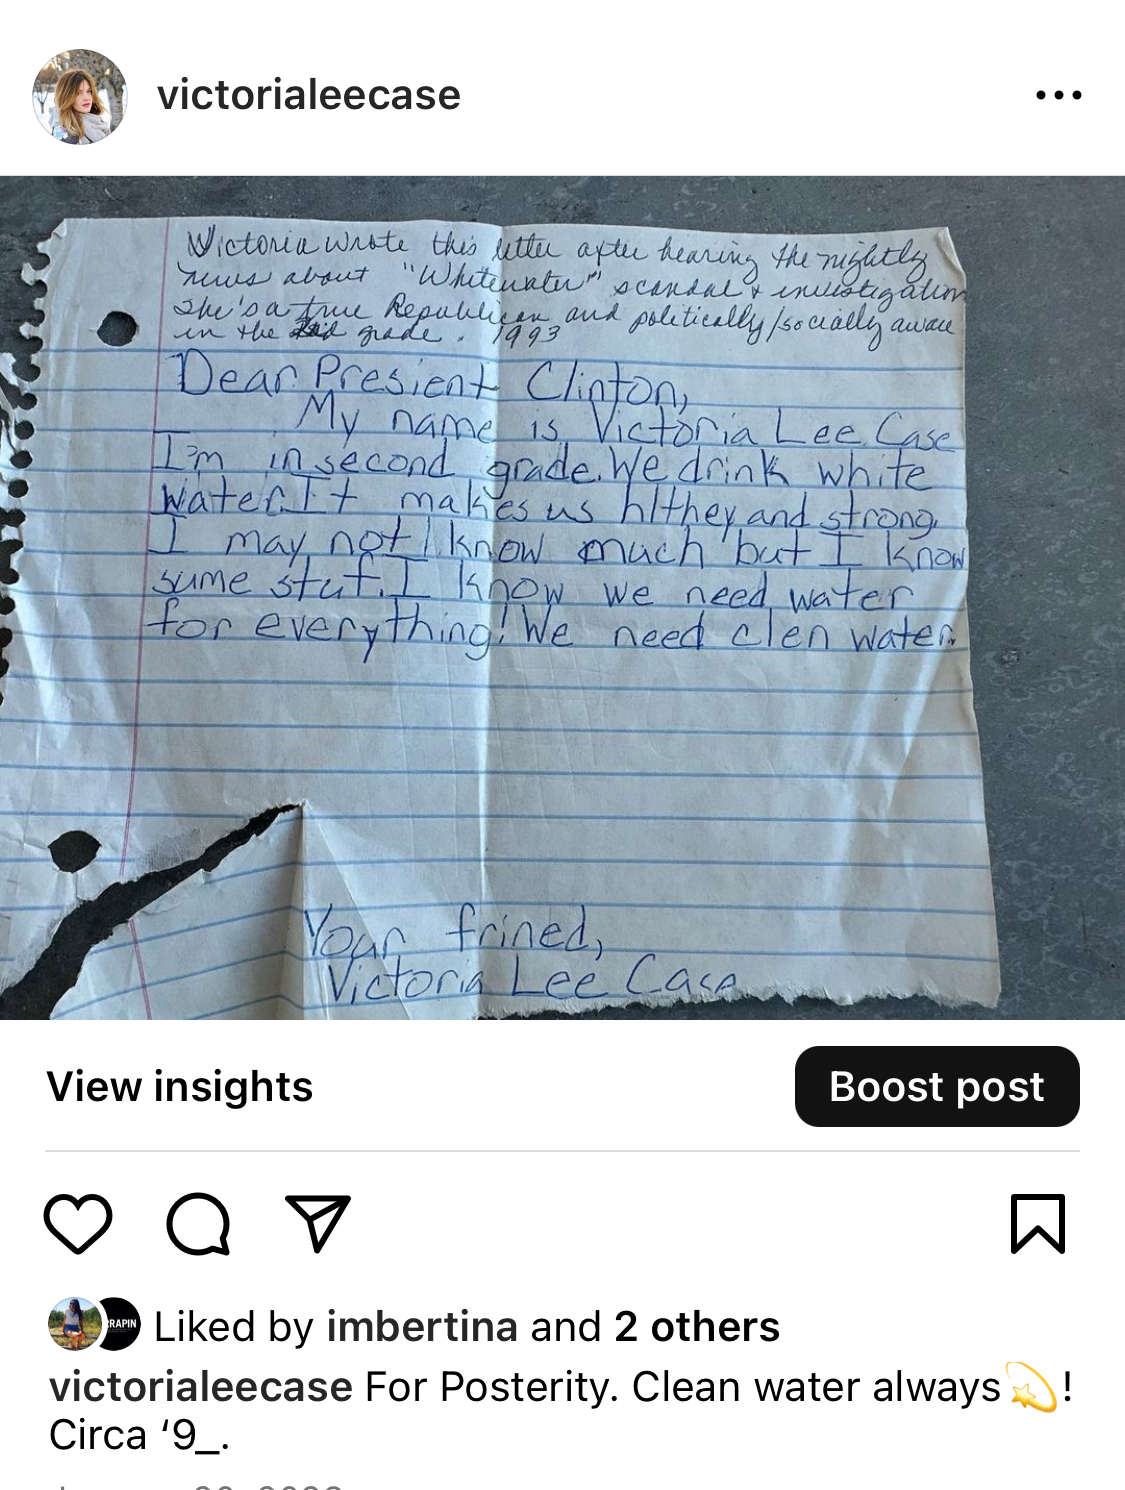 victorialeecase
Victoria wrote this letter after hearing the nightly
news about "Whitewater" scandal + investigation
She's a true Republican and politically/socially aware
in the 2nd grade. 1993
Dear Presient Clinton,
My name is Victoria Lee Case
I'm in second grade. We drink white
water. It makes us hlthey and strong.
I may not know much but I know
sume stuf. I know we need water
for everything! We need clen water.
Your frined,
Victoria Lee Case
View insights
Boost post
RAPIN
Liked by imbertina and 2 others
victorialeecase For Posterity. Clean water always💫!
Circa ‘9_.